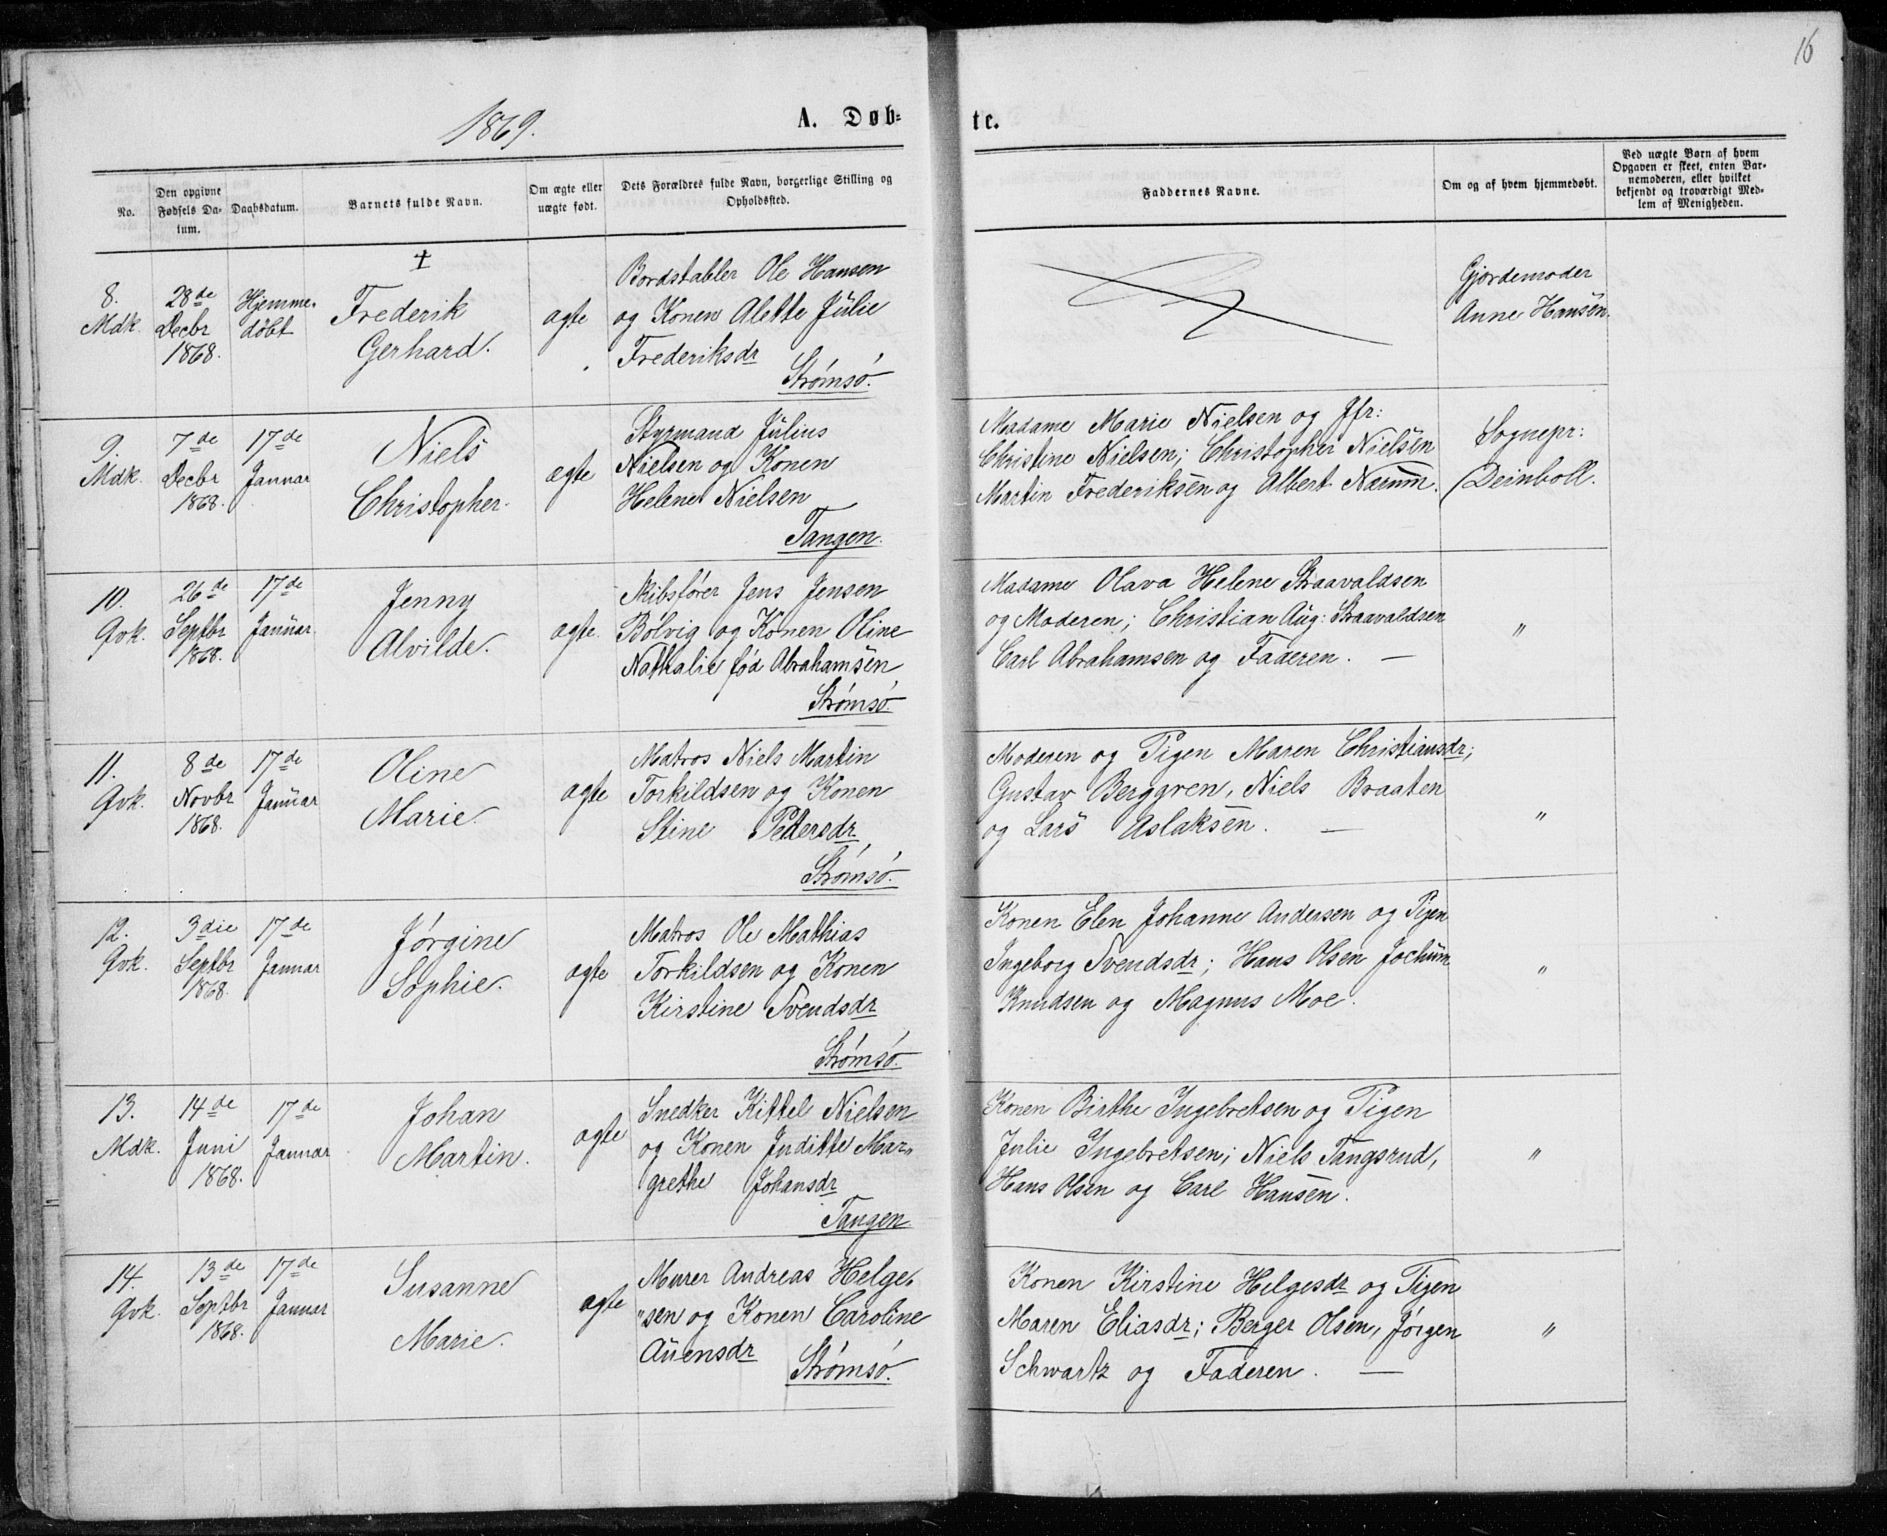 16
1869.
A. Døb=
te.
No.
Den opgivne Fødsels Datum.
Daabsdatum.
Barnets fulde Navn.
Om ægte eller uægte født.
Dets Forældres fulde Navn, borgerlige Stilling og Opholdssted.
Faddernes Navne.
Om og af hvem hjemmedøbt.
Ved uægte Børn af hvem Opgaven er skeet, enten Barnemoderen, eller hvilket bekjendt og troværdigt Medlem af Menigheden.
8.
Mdk.
28de
Decbr
1868.
Hjemme-
döbt
‡
Frederik
Gerhard.
ægte
Bordstabler Ole Hansen
og Konen Alette Jülie
Frederiksdr
Strömsö.
Gjordemoder
Anne Hansen.
9.
Mdk.
7de
Decbr
1868.
17de
Januar
Niels
Christopher.
ægte
Styrmand Jülius
Nielsen og Konen
Helene Nielsen
Tangen.
Madame Marie Nielsen og Jfr:
Christine Nielsen; Christopher Nielsen
Martin Frederiksen og Albert Narum.
Sognepr:
Deinboll.
10.
Qvk.
26de
Septbr
1868.
17de
Januar.
Jenny
Alvilde.
ægte.
Skibsförer Jens Jensen
Bölvig og Konen Oline
Nathalie föd Abrahamsen
Strömsö.
Madame Olava Helene Straavaldsen
og Moderen; Christian Aug: Straavaldsen
Carl Abrahamsen og Faderen. —
"
11.
Qvk.
8de
Novbr
1868.
17de
Januar
Oline
Marie.
ægte
Matros Niels Martin
Torkildsen og Konen
Stine Pettersdr
Strömsö.
Moderen og Pigen Maren Christiansdr;
Gustav Berggren, Niels Braaten
og Lars Aslaksen. —
"
12.
Qvk.
3die
Septbr
1868.
17de
Januar
Jörgine
Sophie.
ægte
Matros Ole Mathias
Torkildsen og Konen
Kirstine Svendsdr
Strömsö.
Konen Elen Johanne Andersen og Pigen
Ingeborg Svendsdr; Hans Olsen Jochum
Knudsen og Magnus Moe.
"
13.
Mdk.
14de
Juni
1868.
17de
Januar
Johan
Martin.
ægte
Snedker Kittel Nielsen
og Konen Juditte Mar-
grethe Johansdr
Tangen
Konen Birthe Ingebretsen og Pigen
Julie Ingebretsen; Niels Tangsrud,
Hans Olsen og Carl Hansen.
"
14.
Qvk.
13de
Septbr
1868.
17de
Januar
Susanne
Marie.
ægte
Murer Andreas Helge-
"sen og Konen Caroline
Auensdr
Strömsö.
Konen Kirstine Helgesdr og Pigen
Maren Eliasdr; Berger Olsen, Jörgen
Schwartz og Faderen. —
"